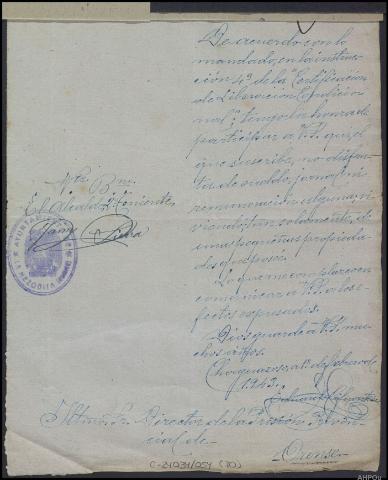 De acuerdo con lo
mandado, en la instruc-
ción 4ª de la "Certificación
de Liberación Condicio-
nal"; tengo la honra de
participar a V.S. que el
que suscribe, no disfru-
ta de sueldo, jornal ni
remuneración alguna, vi-
viendo tan solamente, de
unas pequeñas propieda-
des que posee.
Lo que me complazco en
comunicar a V.S. a los e-
fectos expresados.
Dios guarde a V.S. mu-
chos años.
1º de Febrero de
1.943.
Vto. Bno.
El Alcalde, 2º Teniente,
Iltmo. Sr. Director de la Prisión Provin-
cial de
Orense
C-21031/051 (70)
AHPOu